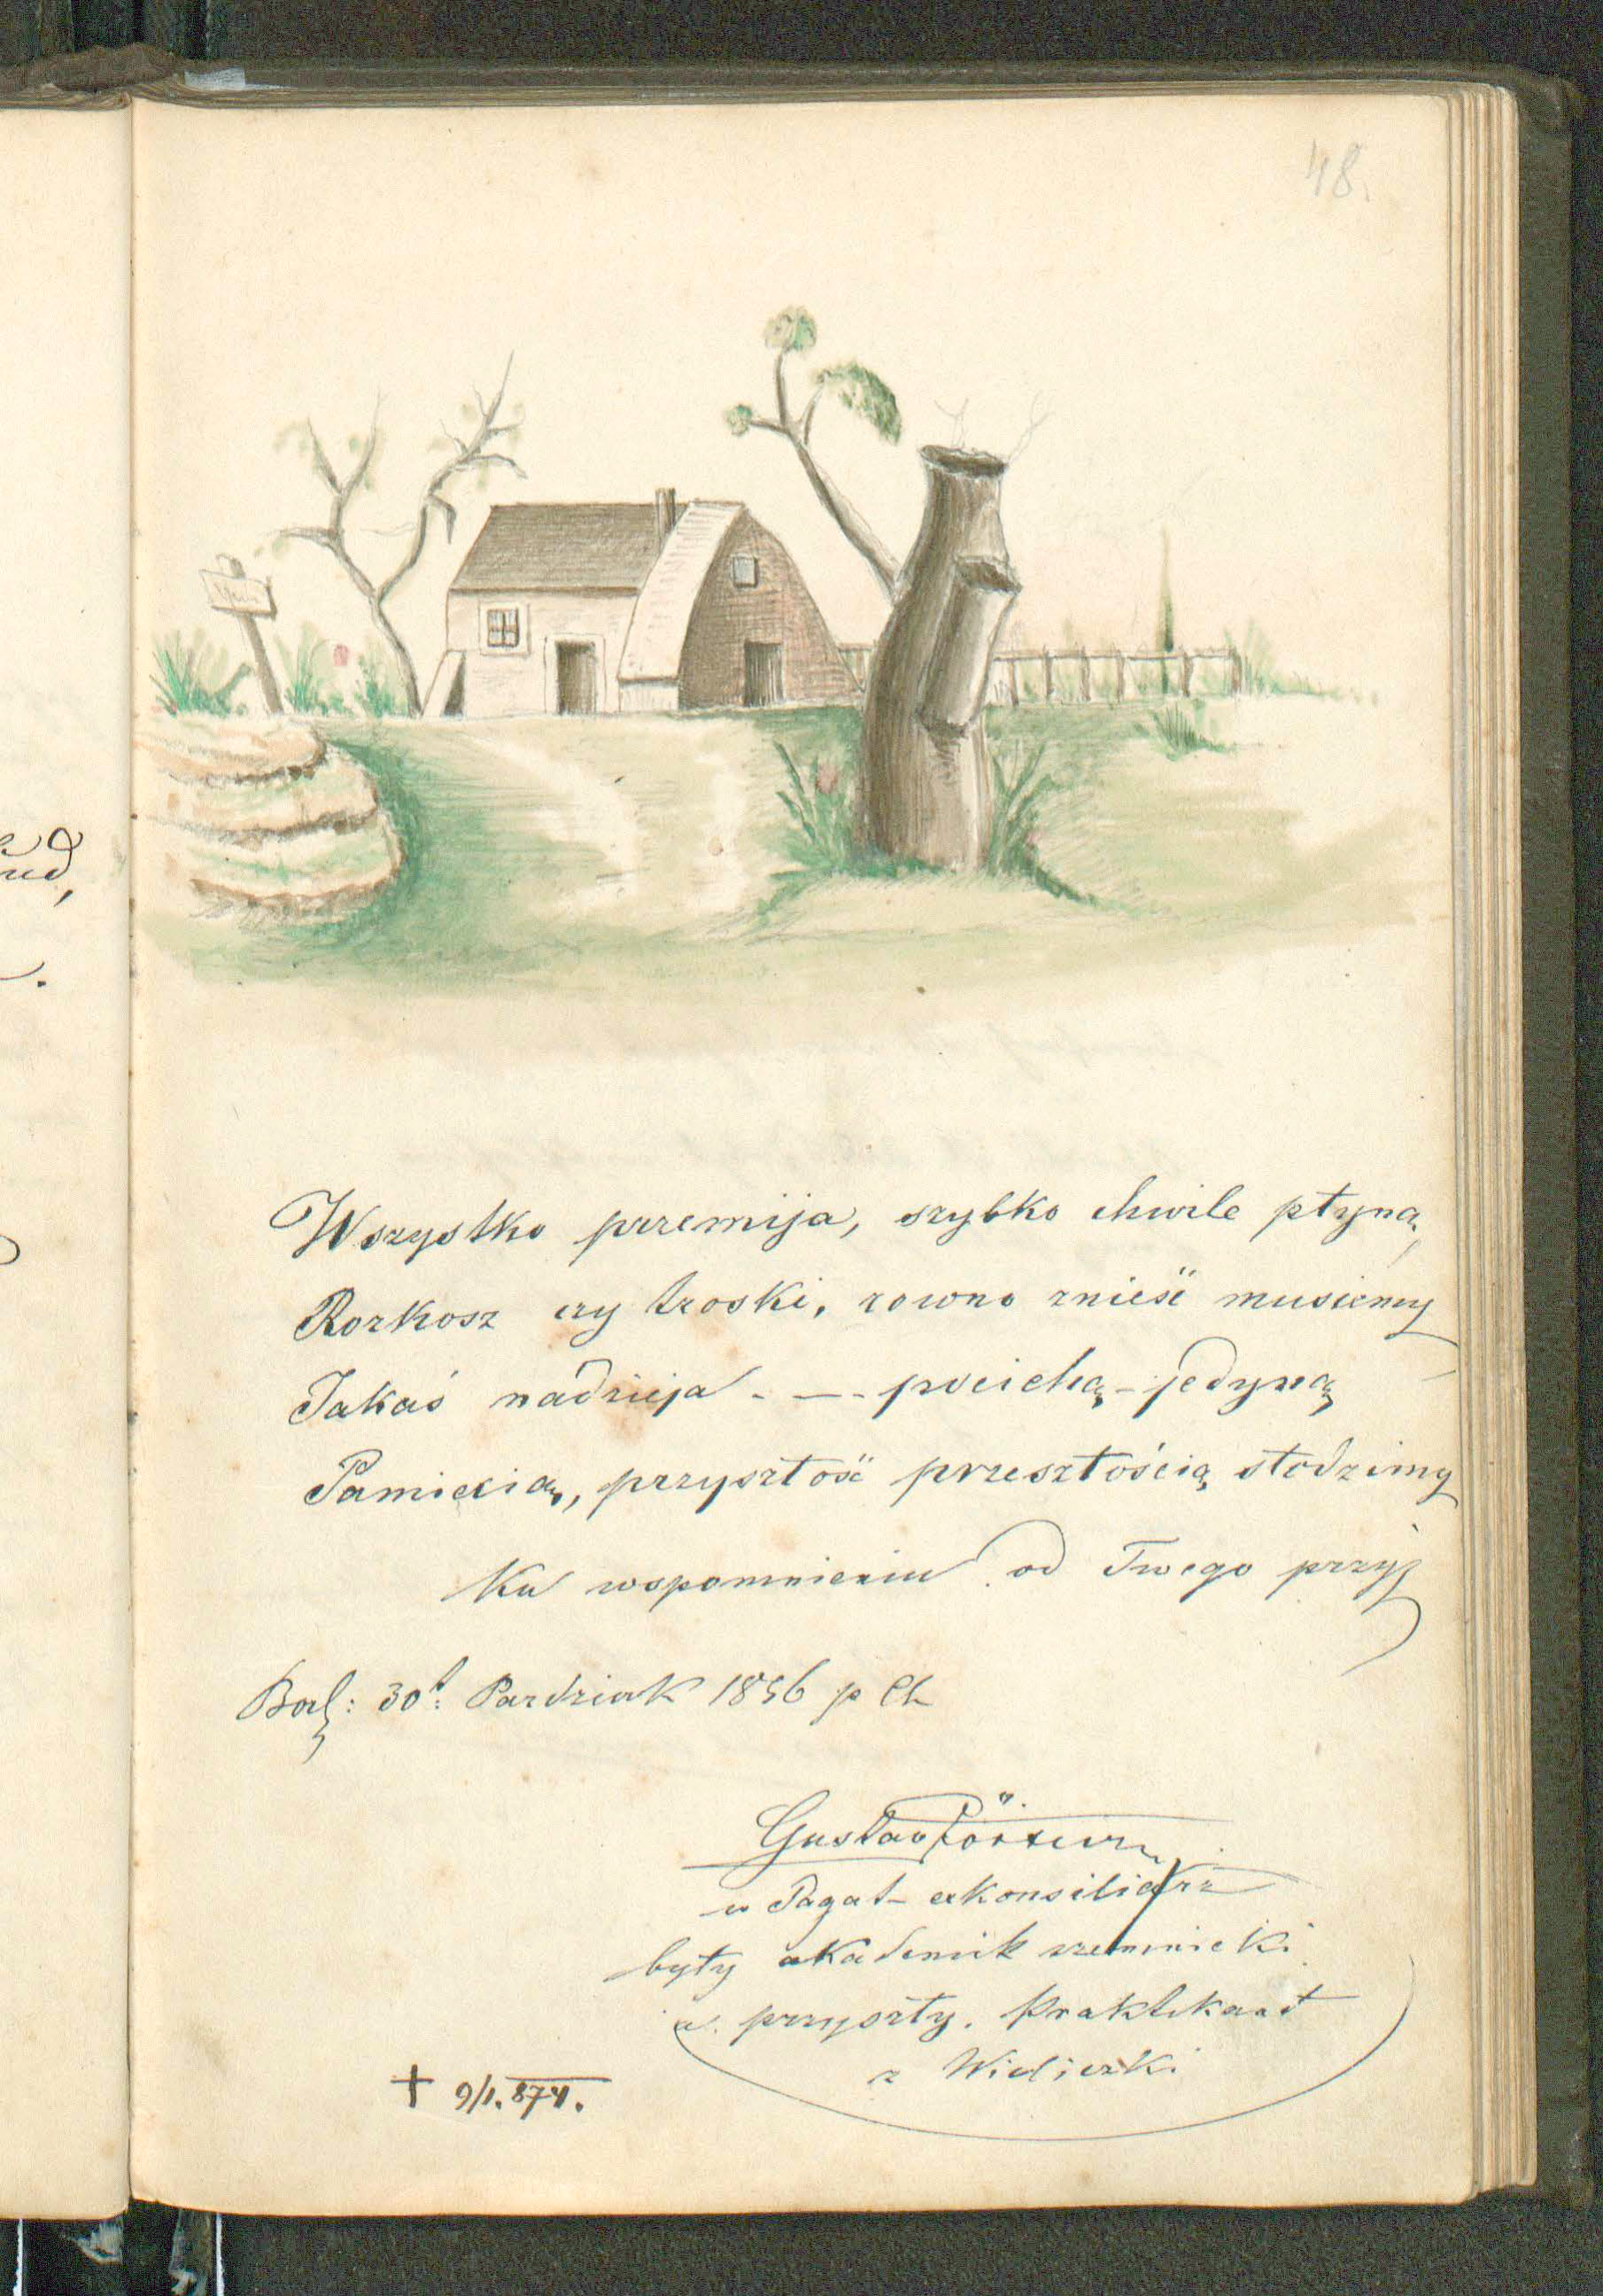 48.
Wszystko przemija, szybko chwile płyną,
Rozkosz czy troski, rowno znieść musiemy
Jakaś nadzieja - — - pociechą - jedyną
Pamięcią, przyszłość przeszłością słodzimy
Ku wspomnieniu od Twego przyj
30t: Pazdziek 1856
Gustav
w Pagat - exkonsiliarz
były akademik szemnicki
a. przyszły. Praktikant
z Wieliczki
† 9/1. 874.